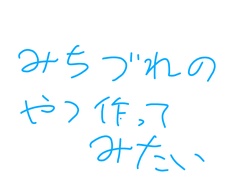 みちづれの
やつ作って
みたい